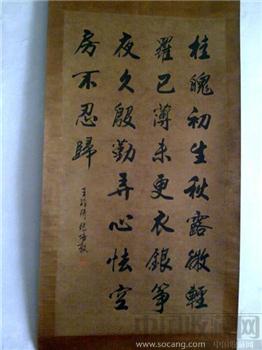 桂魄初生秋露微輕
羅已薄未更衣銀箏
夜久殷勤弄心怯空
房不忍歸
www.socang.com